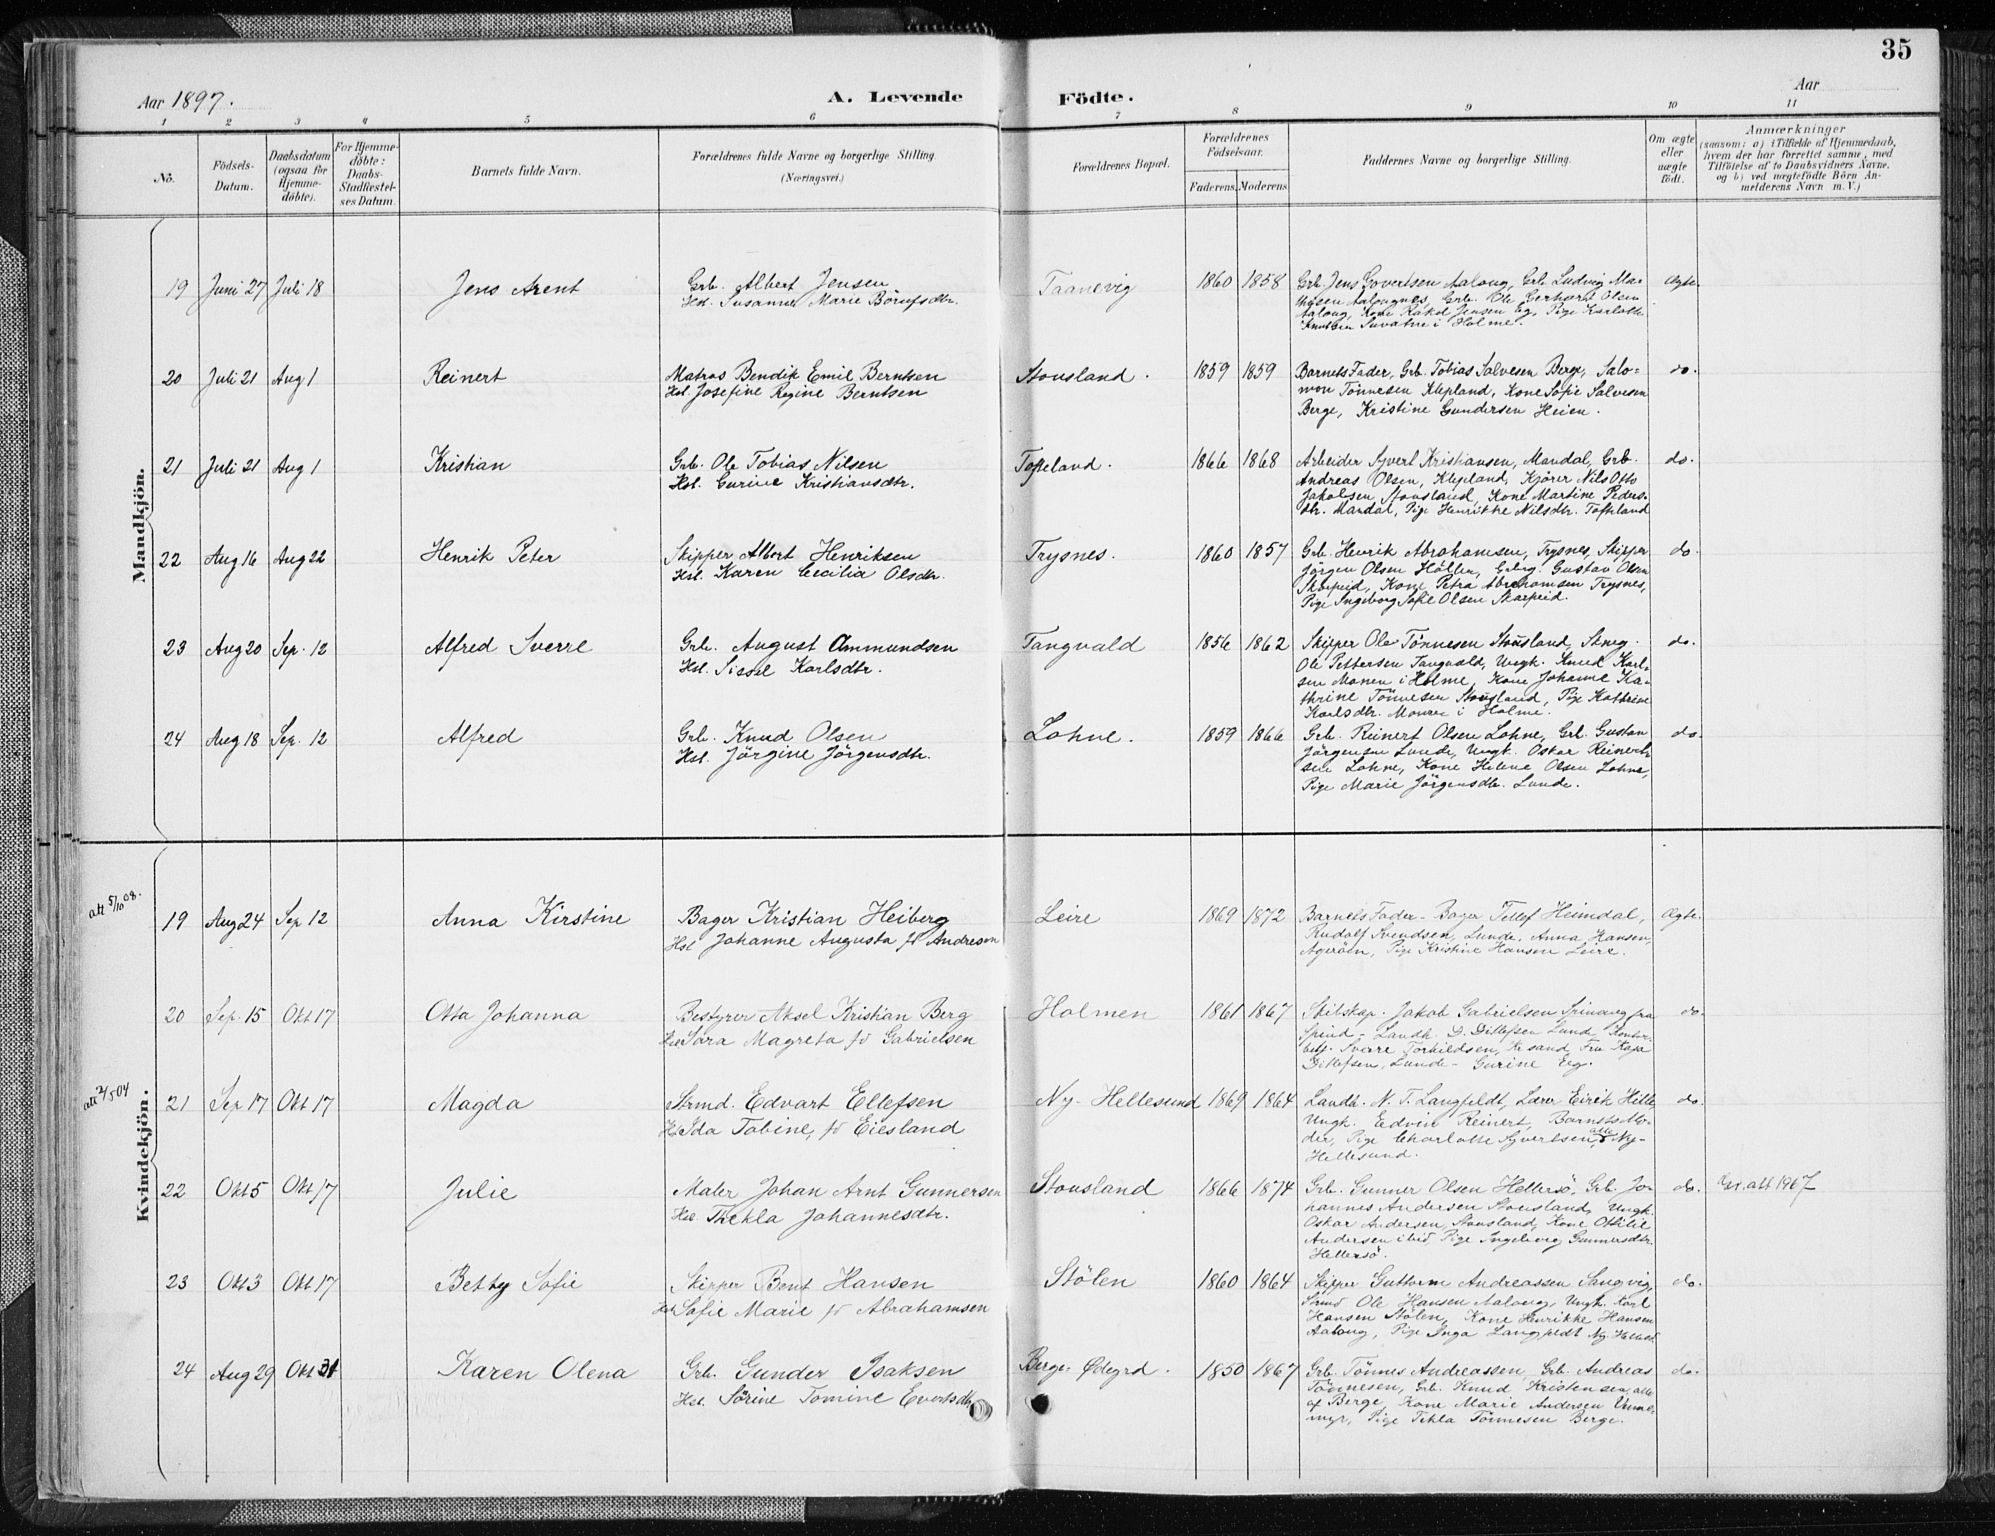 35
Aar 1897.
A. Levende Födte.
Aar
1 2 3 4 5 6 7 8 9 10 11
No.
Födsels-Datum.
Daabsdatum (ogsaa for Hjemme-döbte).
For Hjemme-döbte: Daabs-Stadfæstel-ses Datum.
Barnets fulde Navn.
Forældrenes fulde Navne og borgerlige Stilling
(Næringsvei.)
Forældrenes Bopæl.
Forældrenes Födselsaar.
Faderens. Moderens.
Faddernes Navne og borgerlige Stilling.
Om ægte eller uægte födt.
Anmærkninger
(saasom: a) i Tilfælde af Hjemmedaab, hvem der har forrettet samme, med Tilföielse af to Daabsvidners Navne. og b) ved uægtefödte Börn An-melderens Navn m. V.)
Mandkjön.
19 Juni 27 Juli 18 Jens Arent Grb. Albert Jensen Taanevig 1860 1858 Grb. Jens Govertsen Aaloug, Grb. Ludvig Ma-
Hst. Susanne Marie
Aalougnes, Grb. Ole Gerhard Olsen
Aaloug, Kone Rakel Jensen Eg, Pige Karlotte
Knutsen i Holme.
Ægte.
20 Juli 21 Aug 1 Reinert Matros Bendik Emil Berntsen Stousland. 1859 1859 Barnets Fader, Grb. Tobias Salvesen Berge, Salo- do.
Hst. Josefine Regine Berntsen
mon Tönnesen Klepland, Kone Sofie Salvesen
Berge, Kristine Gundersen Heien.
21 Juli 21 Aug 1 Kristian Grb. Ole Tobias Nilsen Tofteland. 1866 1868 Arbeider Syvert Kristiansen, Mandal, Grb. do.
Hst. Gurine Kristiansdtr.
Andreas Olsen, Klepland, Nils Otto
Jakobsen, Stousland, Kone Martine Peders-
dtr. Mandal, Pige Henrikke Nilsdtr. Tofteland
22 Aug 16 Aug 22 Henrik Peter Skipper Albert Henriksen Trysnes. 1860 1857 Grb. Henrik Abrahamsen, Trysnes, Skipper do.
Hst. Karen Cecilia Olsdtr.
Jörgen Olsen Höllen, Gustav Olsen
Skarpeid, Kone Petra Abrahamsen Trysnes,
Pige Ingeborg Sofie Olsen Skarpeid.
23 Aug 20 Sep. 12 Alfred Sverre Grb. August Ammundsen Tangvald 1856 1862 Skipper Ole Tönnesen Stousland, do.
Hst. Sissel Karlsdtr.
Ole Pettersen Tangvald, Ungk. Knud Karl-
sen Monen i Holme, Kone Johanne Ka-
thrine Tönnesen Stousland, Pige Kathrine
Karlsdtr. Monen i Holme.
24 Aug 18 Sep. 12 Alfred Grb. Knud Olsen Lohne. 1859 1866 Grb. Reinert Olsen Lohne, Grb. Gustav do.
Hst. Jörgine Jörgensdtr.
Jörgensen Lunde, Ungk. Oskar Reinert-
sen Lohne, Kone Helene Olsen Lohne,
Pige Marie Jörgensdtr. Lunde.
Kvindekjön.
att 5/10 08.
19 Aug 24 Sep 12 Anna Kirstine Bager Kristian Heiberg Leire 1869 1872 Barnets Fader - Bager Tellef Heimdal, Ægte.
Hst Johanne Augusta fö Andresen
Rudolf Svendsen, Lunde, Anna Hansen,
Ageröen, Pige Kristine Hansen Leire.
20 Sep. 15 Okt 17 Otta Johanna Bestyrer Aksel Kristian Berg Holmen 1861 1867 Skibskap. Jakob Gabrielsen fra do.
Hst Sara Magreta fö Gabrielsen
Spind - Landh. D. Ditlefsen Lund
Sverre Torkildsen, Kr.sand, Fru Kaja
Ditlefsen, Lunde - Gurine Eeg.
21 Sep 17 Okt 17 Magda Strmd. Edvart Ellefsen Ny-Hellesund 1869 1864 Landh. N. T. Langfeldt, Lærer Eirik Hille do.
Hst Ida Tobine, fö Eiesland
Ungk. Edvin Reinert, Barnets Mo-
der, Pige Charlotte Syvertsen, alle Ny-
Hellesund.
22 Okt 5 Okt 17 Julie Maler Johan Arnt Gunnersen Stousland 1866 1874 Grb. Gunner Olsen Hellersö, Grb. Jo- do.
Hst. Thekla Johannesdtr.
hannes Andersen Stousland, Ungk.
Oskar Andersen, Stousland, Kone Ottilie
Andersen ibid Pige Ingeborg Gunnersdtr.
Hellersö.
att 1907
23 Okt 3 Okt 17 Betty Sofie Skipper Bent Hansen Stölen 1860 1864 Skipper Guttorm Andreassen Langvig, do.
Hst Sofie Marie fö Abrahamsen
Strmd Ole Hansen Aaloug, Ungk. Karl
Hansen Stölen, Kone Henrikke Hansen
Aaloug, Pige Inga Langfeldt Ny Hellesd
24 Aug 29 Okt 31 Karen Olena Grb. Gunder Isaksen Berge-Ødegrd. 1850 1867 Grb. Tönnes Andreassen, Grb. Andreas do.
Hst. Sörine Tomine Evertsdtr
Tönnesen, Grb. Knud Kristensen, alle
af Berge, Kone Marie Andersen
Pige Tekla Tönnesen Berge.